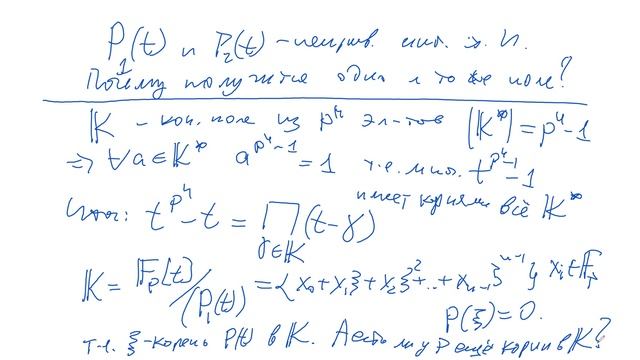 P₁(t) и P₂(t) – неприв. мн. ст. n.
Почему получится одно и то же поле?
𝕂 – кон. поле из pⁿ эл-тов |𝕂*| = pⁿ-1
⇒ ∀a∈𝕂* a^{pⁿ-1} = 1 т.е. мн. t^{pⁿ-1}-1
имеет корнями всё 𝕂*
Итог: t^{pⁿ} - t = ∏_{γ∈𝕂} (t-γ)
𝕂 = 𝔽p[t]/(P₁(t)) = {x₀+x₁ξ+x₂ξ²+..+x_{n-1}ξ^{n-1}} xᵢ∈𝔽p
P(ξ)=0.
т.е. ξ-корень P(t) в 𝕂. А есть ли у P ещё корни в 𝕂?